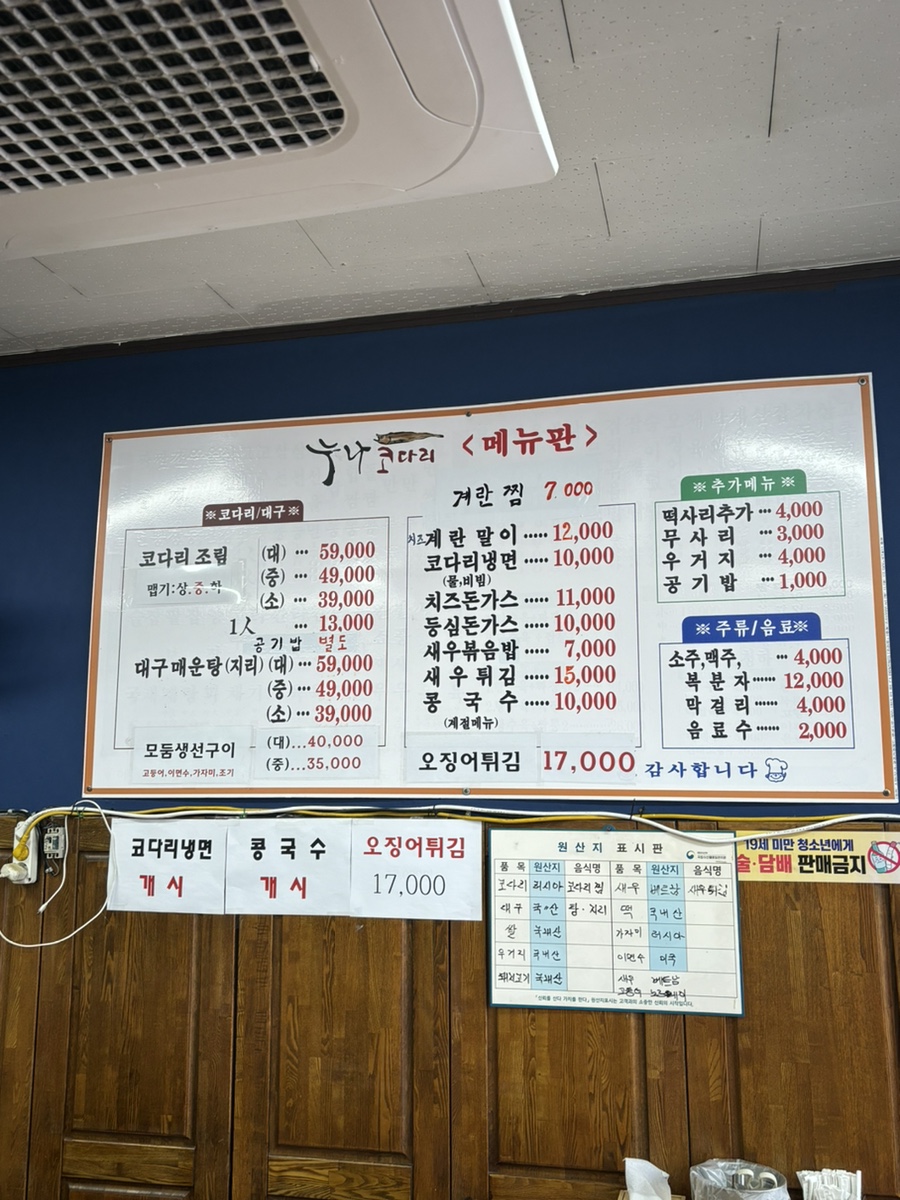 누나 코다리 <메뉴판>
※코다리/대구※
코다리 조림 (대) ··· 59,000
맵기:상.중.하 (중) ··· 49,000
(소) ··· 39,000
1人 ··· 13,000
공기밥 별도
대구매운탕(지리) (대) ··· 59,000
(중) ··· 49,000
(소) ··· 39,000
모둠생선구이 (대)...40,000
고등어,이면수,가자미,조기 (중)...35,000
계란 찜 7.000
치즈계란 말이 ····· 12,000
코다리냉면 ····· 10,000
(물,비빔)
치즈돈가스 ····· 11,000
등심돈가스 ····· 10,000
새우볶음밥 ····· 7,000
새우튀김 ····· 15,000
콩국수 ····· 10,000
(계절메뉴)
오징어튀김 17,000
※추가메뉴※
떡사리추가 ··· 4,000
무사리 ··· 3,000
우거지 ··· 4,000
공기밥 ··· 1,000
※주류/음료※
소주,맥주, ··· 4,000
복분자 ······ 12,000
막걸리 ······ 4,000
음료수 ······ 2,000
감사합니다
코다리냉면
개시
콩국수
개시
오징어튀김
17,000
원산지 표시판
품목 원산지 음식명 품목 원산지 음식명
코다리 러시아 코다리찜 새우 베트남 새우튀김
대구 국산 탕·지리 떡 국내산
쌀 국내산 가자미 러시아
우거지 국내산 이면수 미국
돼지고기 국내산 새우 베트남
고등어 노르웨이
「신뢰를 산다 가치를 판다」 원산지표시는 고객과의 소중한 신뢰의 시작입니다.
19세 미만 청소년에게
술·담배 판매금지